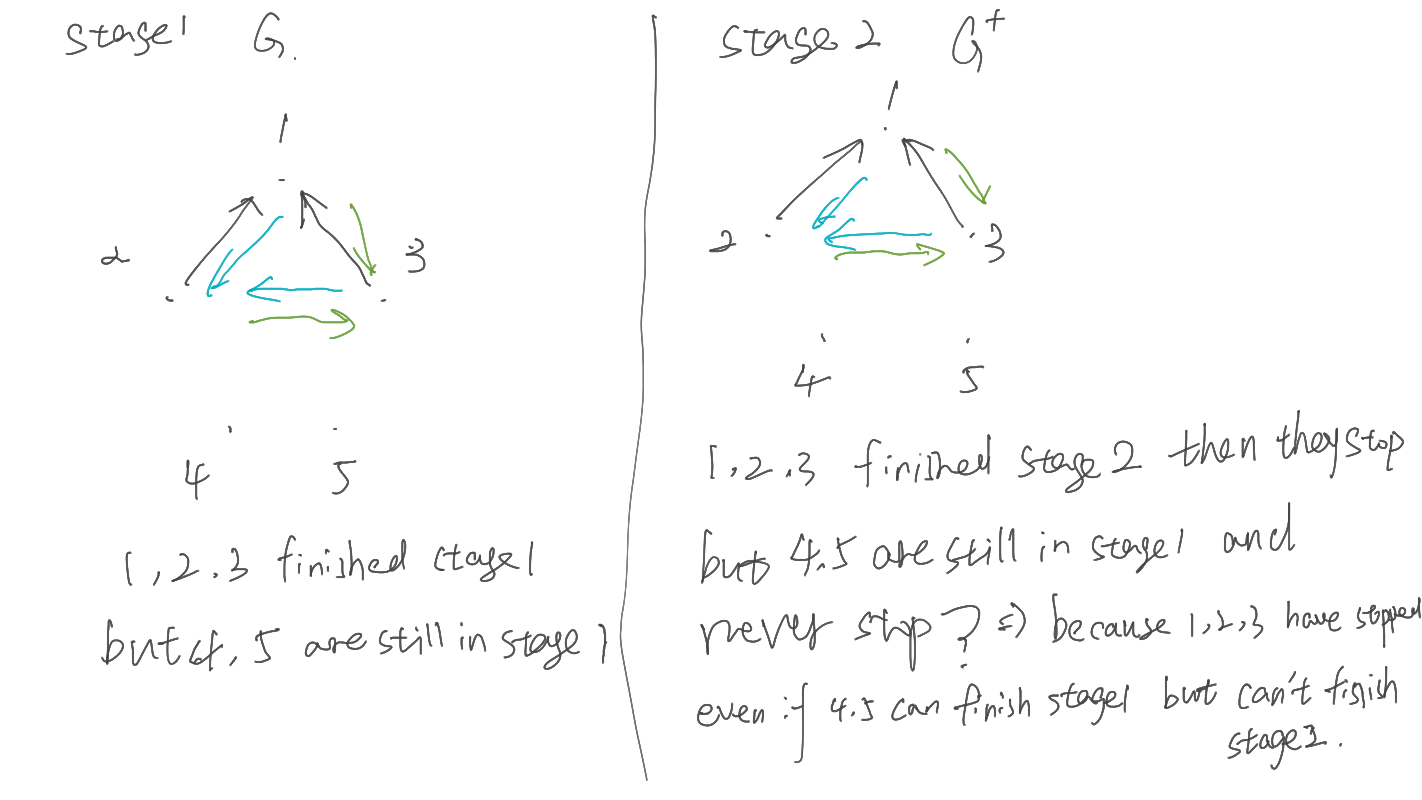 stage1 G.
1
2 3
4 5
1,2.3 finished ctage1
but 4, 5 are still in stage 1
stage 2 G+
1
2 3
4 5
1,2.3 finished stage 2 then they stop
but 4.5 are still in stage1 and
never stop? => because 1,2,3 have stopped
even if 4.5 can finish stage1 but can't finish
stage2.